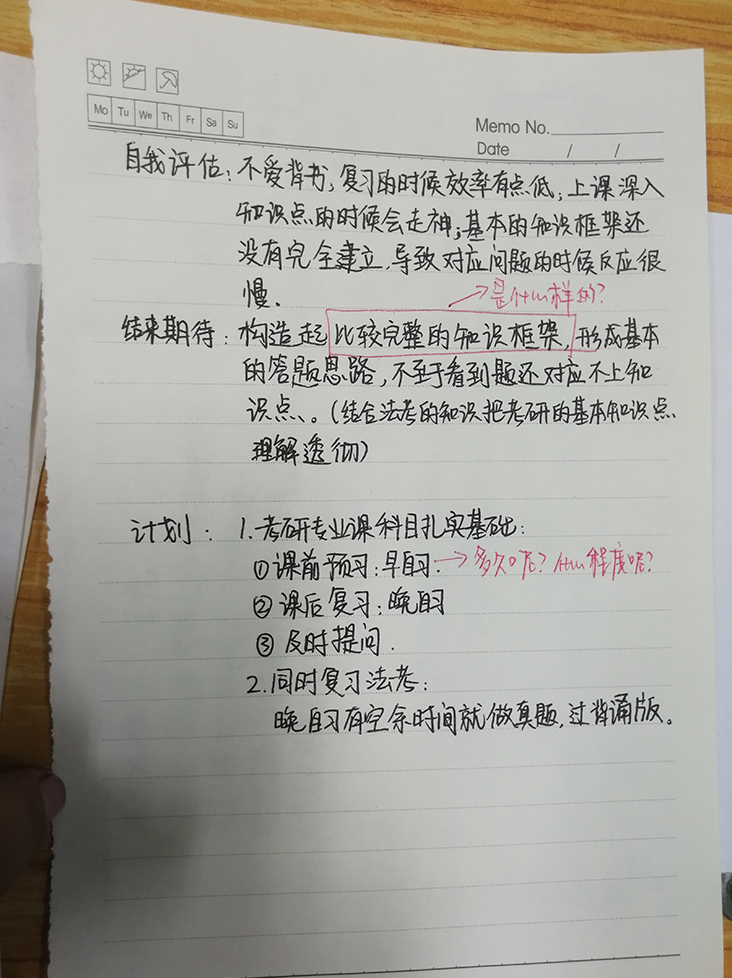 Mo Tu We Th Fr Sa Su
Memo No.
Date / /
自我评估：不爱背书，复习的时候效率有点低，上课深入
知识点的时候会走神；基本的知识框架还
没有完全建立，导致对应问题的时候反应很
慢．
→是什么样的？
结束期待：构造起比较完整的知识框架，形成基本
的答题思路，不至于看到题还对应不上知
识点、。（结合法考的知识把考研的基本知识点
理解透彻）
计划：1.考研专业课科目扎实基础：
①课前预习：早自习．→多久呢？什么程度呢？
②课后复习：晚自习
③及时提问．
2.同时复习法考：
晚自习有空余时间就做真题，过背诵版。